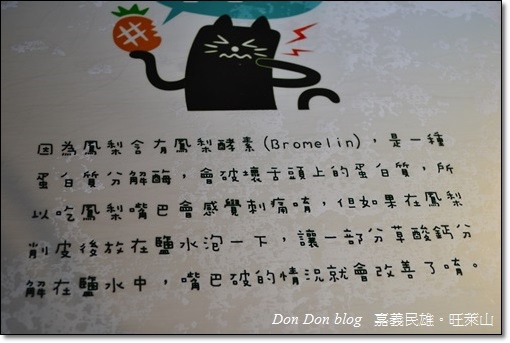 因為鳳梨含有鳳梨酵素(Bromelin)，是一種
蛋白質分解酶，會破壞舌頭上的蛋白質，所
以吃鳳梨嘴巴會感覺刺痛唷，但如果在鳳梨
削皮後放在鹽水泡一下，讓一部分草酸鈣分
解在鹽水中，嘴巴破的情況就會改善了唷。
Don Don blog 嘉義民雄。旺萊山